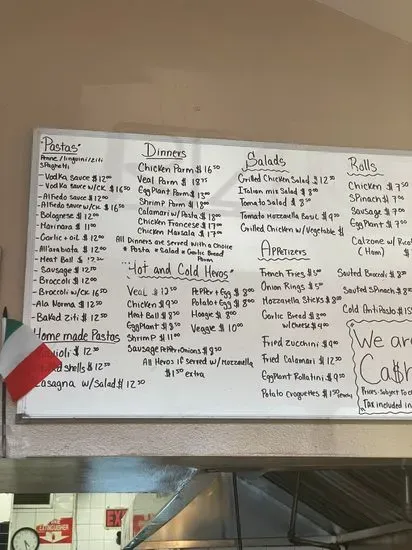 "Pastas"
Penne/linguini/ziti
SPaghetti
- Vodka Sauce $12.00
- Vodka Sauce w/ck. $16.50
- Alfredo Sauce $12.00
- Alfredo Sauce w/ck $16.50
- Bolognese $12.00
- Marinara $11.00
- Garlic + oil $12.00
- All'arabiata $12.00
- Meat Ball $12.50
- Sausage $12.50
- Broccoli $12.00
- Broccoli w/ck 16.50
- Ala Norma $12.50
- Baked Ziti $12.50
Home made Pastas
$12.50
shells $12.50
Lasagna w/Salad $12.50
Dinners
Chicken Parm $16.50
Veal Parm $18.75
EggPlant Parm $15.00
Shrimp Parm $18.00
Calamari w/Pasta $18.00
Chicken Francese $17.00
Chicken Marsala $17.00
All Dinners are Served with a Choice
* Pasta * Salad * Garlic Bread
"Hot and Cold Heros"
Veal $13.50
Chicken $9.50
Meat Ball $8.50
EggPlant $8.50
Shrimp $11.00
Sausage Pepper + Onions $8.50
PePPer + Egg $8.00
Potato + Egg $8.00
Hoagie $8.00
Veggie $10.00
All Heros if Served w/Mozzarella
$1.50 extra
Salads
Grilled Chicken Salad $12.50
Italian mix Salad $8.00
Tomato Salad $8.50
Tomato Mozzarella Basil $9.00
Grilled Chicken w/Vegetable $
APPetizers
French Fries $5.00
Onion Rings $5.00
Mozzarella Sticks $8.00
Garlic Bread $3.00
w/Cheese $4.00
Fried Zucchini $9.00
Fried Calamari $12.50
EggPlant Rollatini $9.50
Potato Croquettes $1.50 each
Rolls
Chicken $7.50
SPinach $7.00
Sausage $7.00
EggPlant $7.00
Calzone w/Ricot
(Ham)
Sauteed Broccoli $8.00
Sauteed SPinach $8.00
Cold AntiPasto $15
We are
Cash
Prices Subject To C
Tax included in
FIRE
EXTINGUISHER
EX